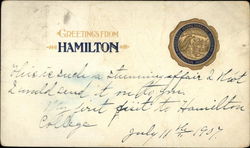 GREETINGS FROM
HAMILTON
This is such a stunning affair I that
I would send it on to you.
My first visit to Hamilton
College
July 11th, 1907.